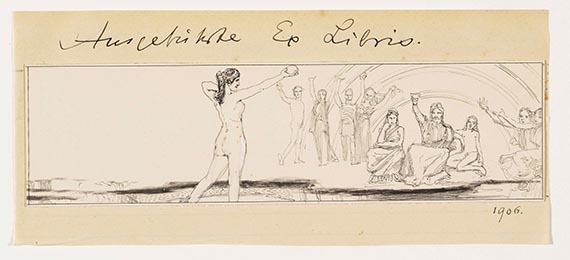 Ausgeführte Ex Libris.
1906.